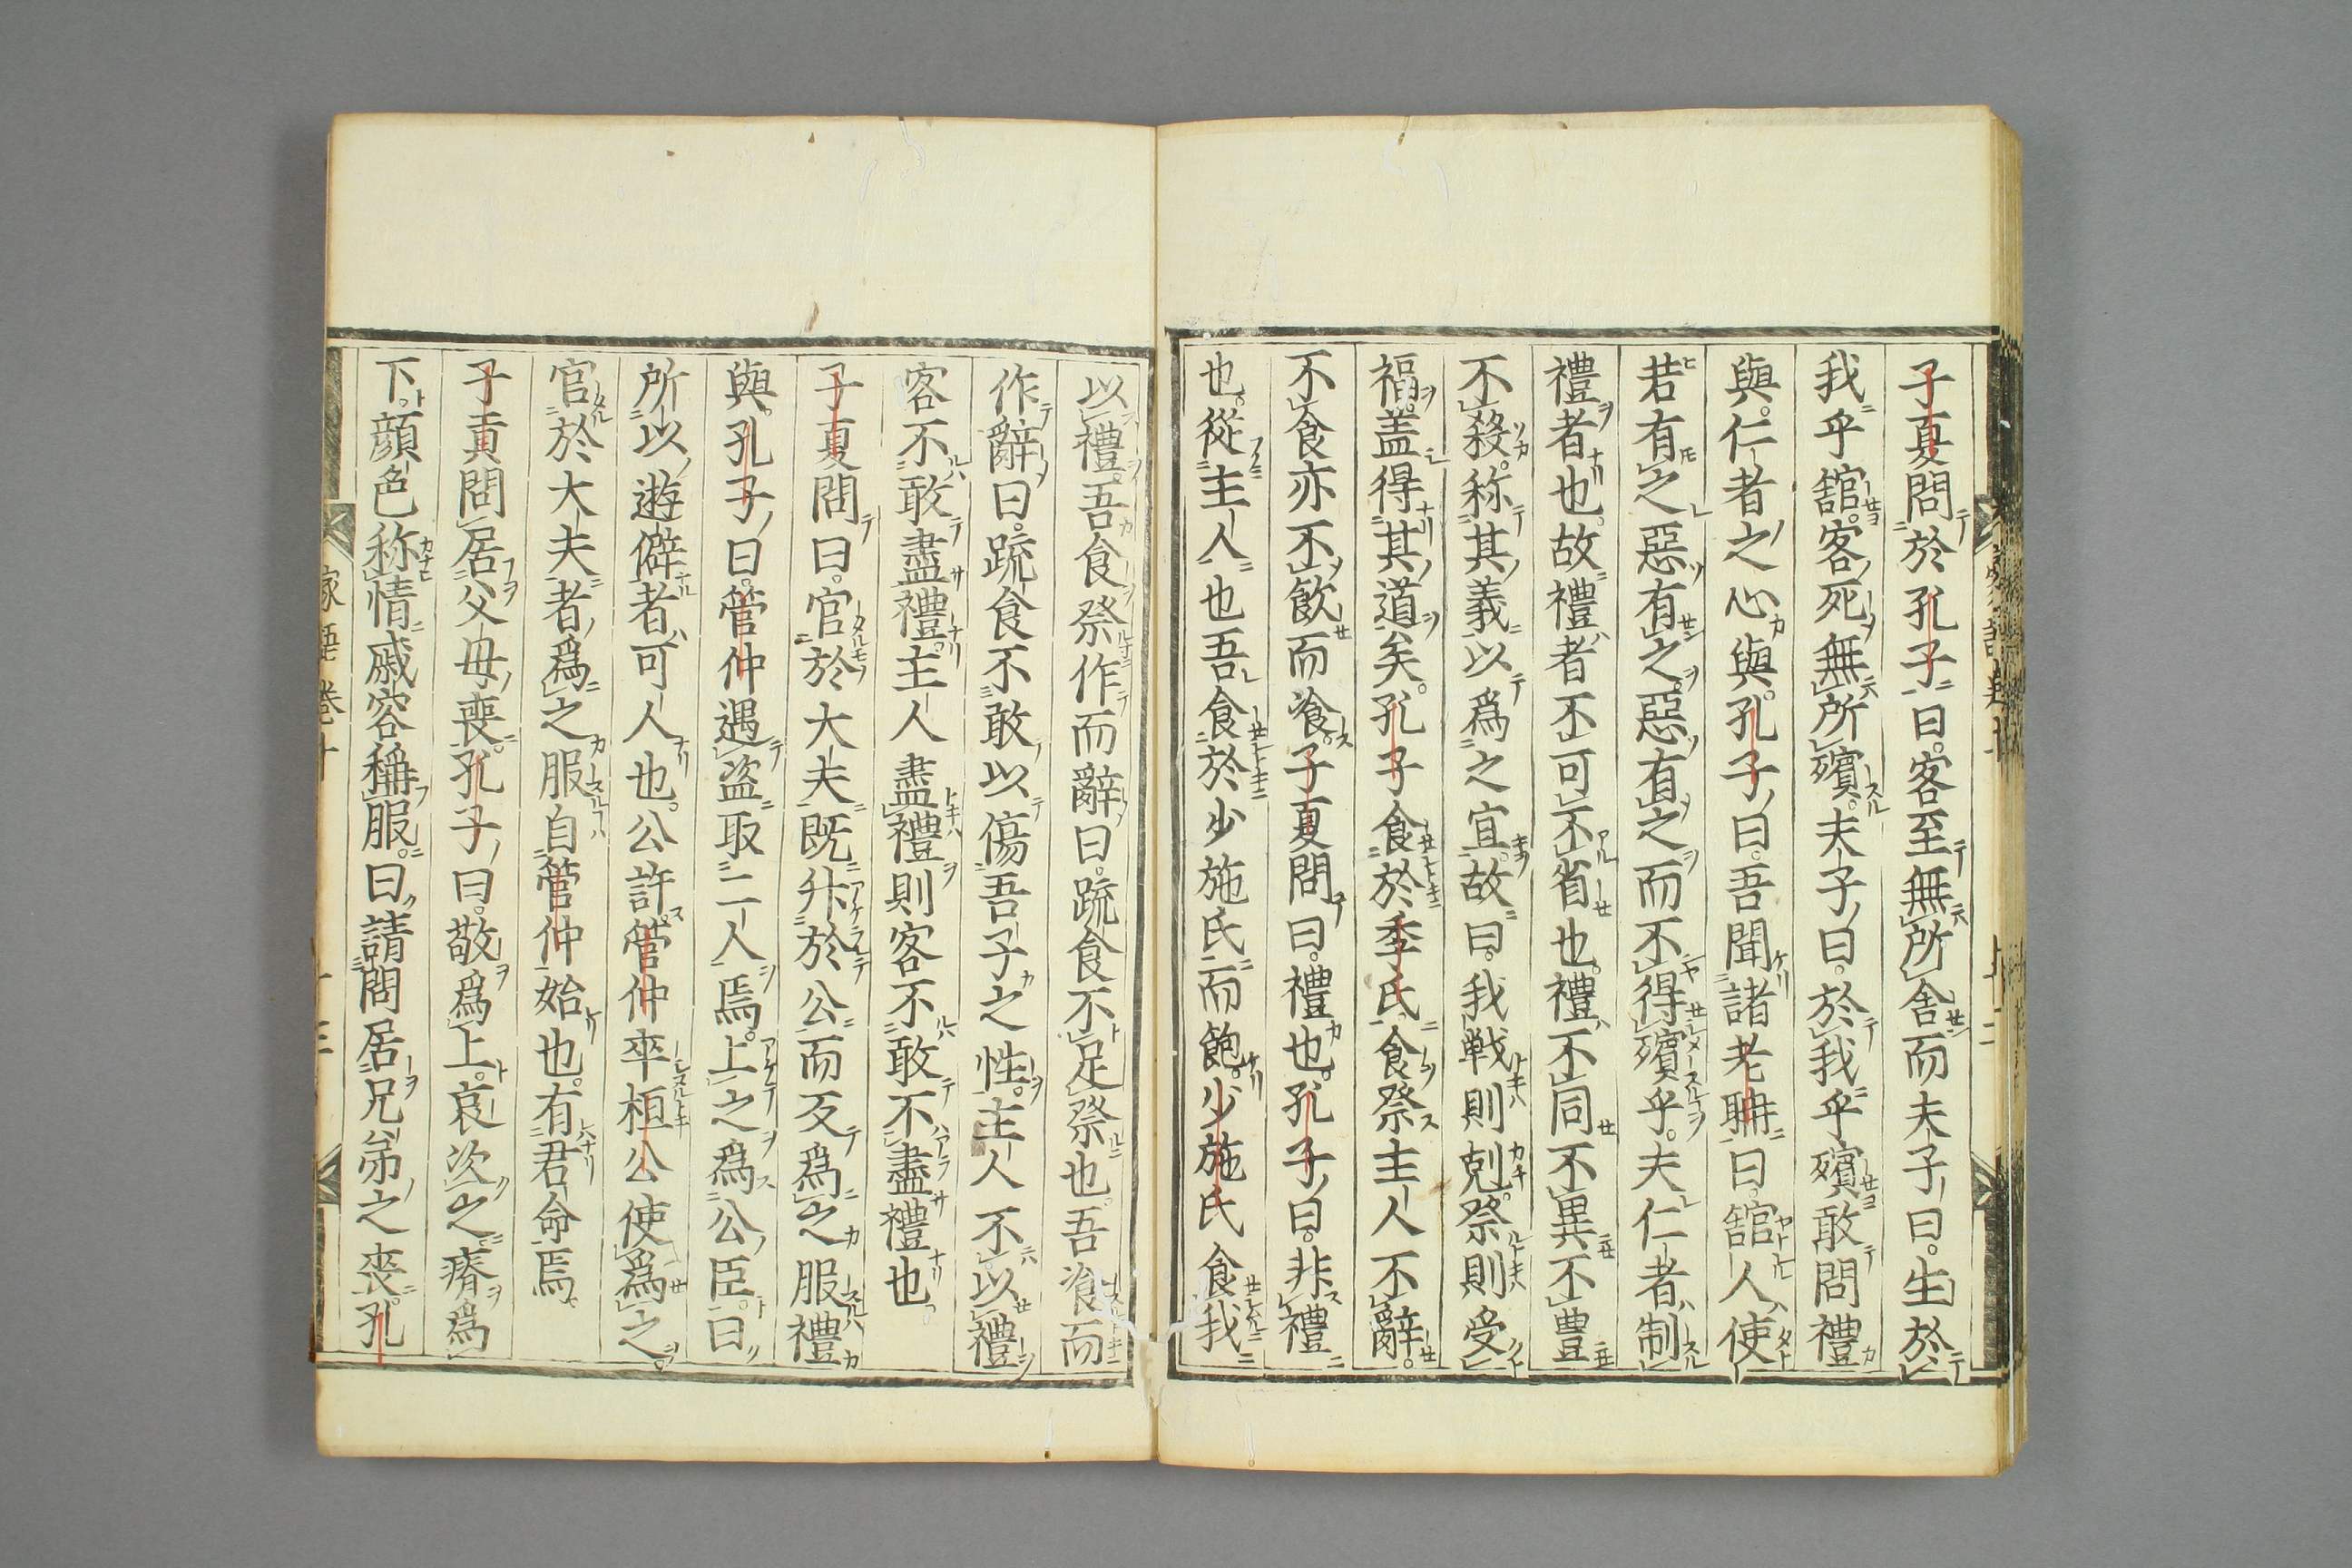 子夏問於孔子曰。客至無所舍而夫子曰。生於
我乎舘。客死無所殯。夫子曰。於我乎殯敢問禮
與。仁者之心與。孔子曰。吾聞諸老耼曰。舘人使
若有之惡有之。惡有之而不得殯乎。夫仁者制
禮者也。故禮者不可不省也。禮不同不異不豊
不殺。称其義以爲之宜。故曰。我戦則剋。祭則受
福。盖得其道矣。孔子食於季氏食祭主人不辭。
不食亦不飲而飡。子夏問曰。禮也。孔子曰。非禮
也。從主人也吾食於少施氏而飽。少施氏食我
以禮。吾食祭作而辭曰。疏食不足祭也。吾飡而
作辭曰。疏食不敢以傷吾子之性。主人不以禮
客不敢盡禮。主人盡禮則客不敢不盡禮也。
子夏問曰。官於大夫既升於公而反爲之服禮
與。孔子曰。管仲遇盜取二人焉。上之爲公臣。曰
所以遊僻者可人也。公許。管仲卒桓公使爲之。
官於大夫者爲之服自管仲始也。有君命焉。
子貢問居父毋喪。孔子曰。敬爲上。哀次之瘠爲
下。顔色称情戚容稱服。曰請問居兄弟之喪。孔
家語卷十
十三